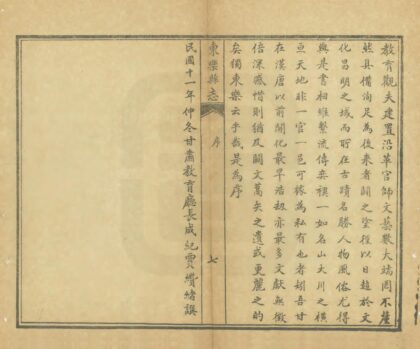 教育觀夫建置沿革官師文藝數大端固不虛
然具備洵足為後來者闢之塗徑以日趨於文
化昌明之域而所在古蹟名勝人物風俗尤得
與是書相維繫流傳奕禩一如名山大川之橫
亘天地非一官一邑可稼為私有也者胡吾甘
在漢唐以前開化最早浩劫亦最多文獻無徵
倍深感惜則猶及闕文蒿矣之遺或更麗之的
矣獨東樂云乎哉是為序
東樂縣志
序
七
民國十一年仲冬甘肅教育廳長成紀賈纘緒譔